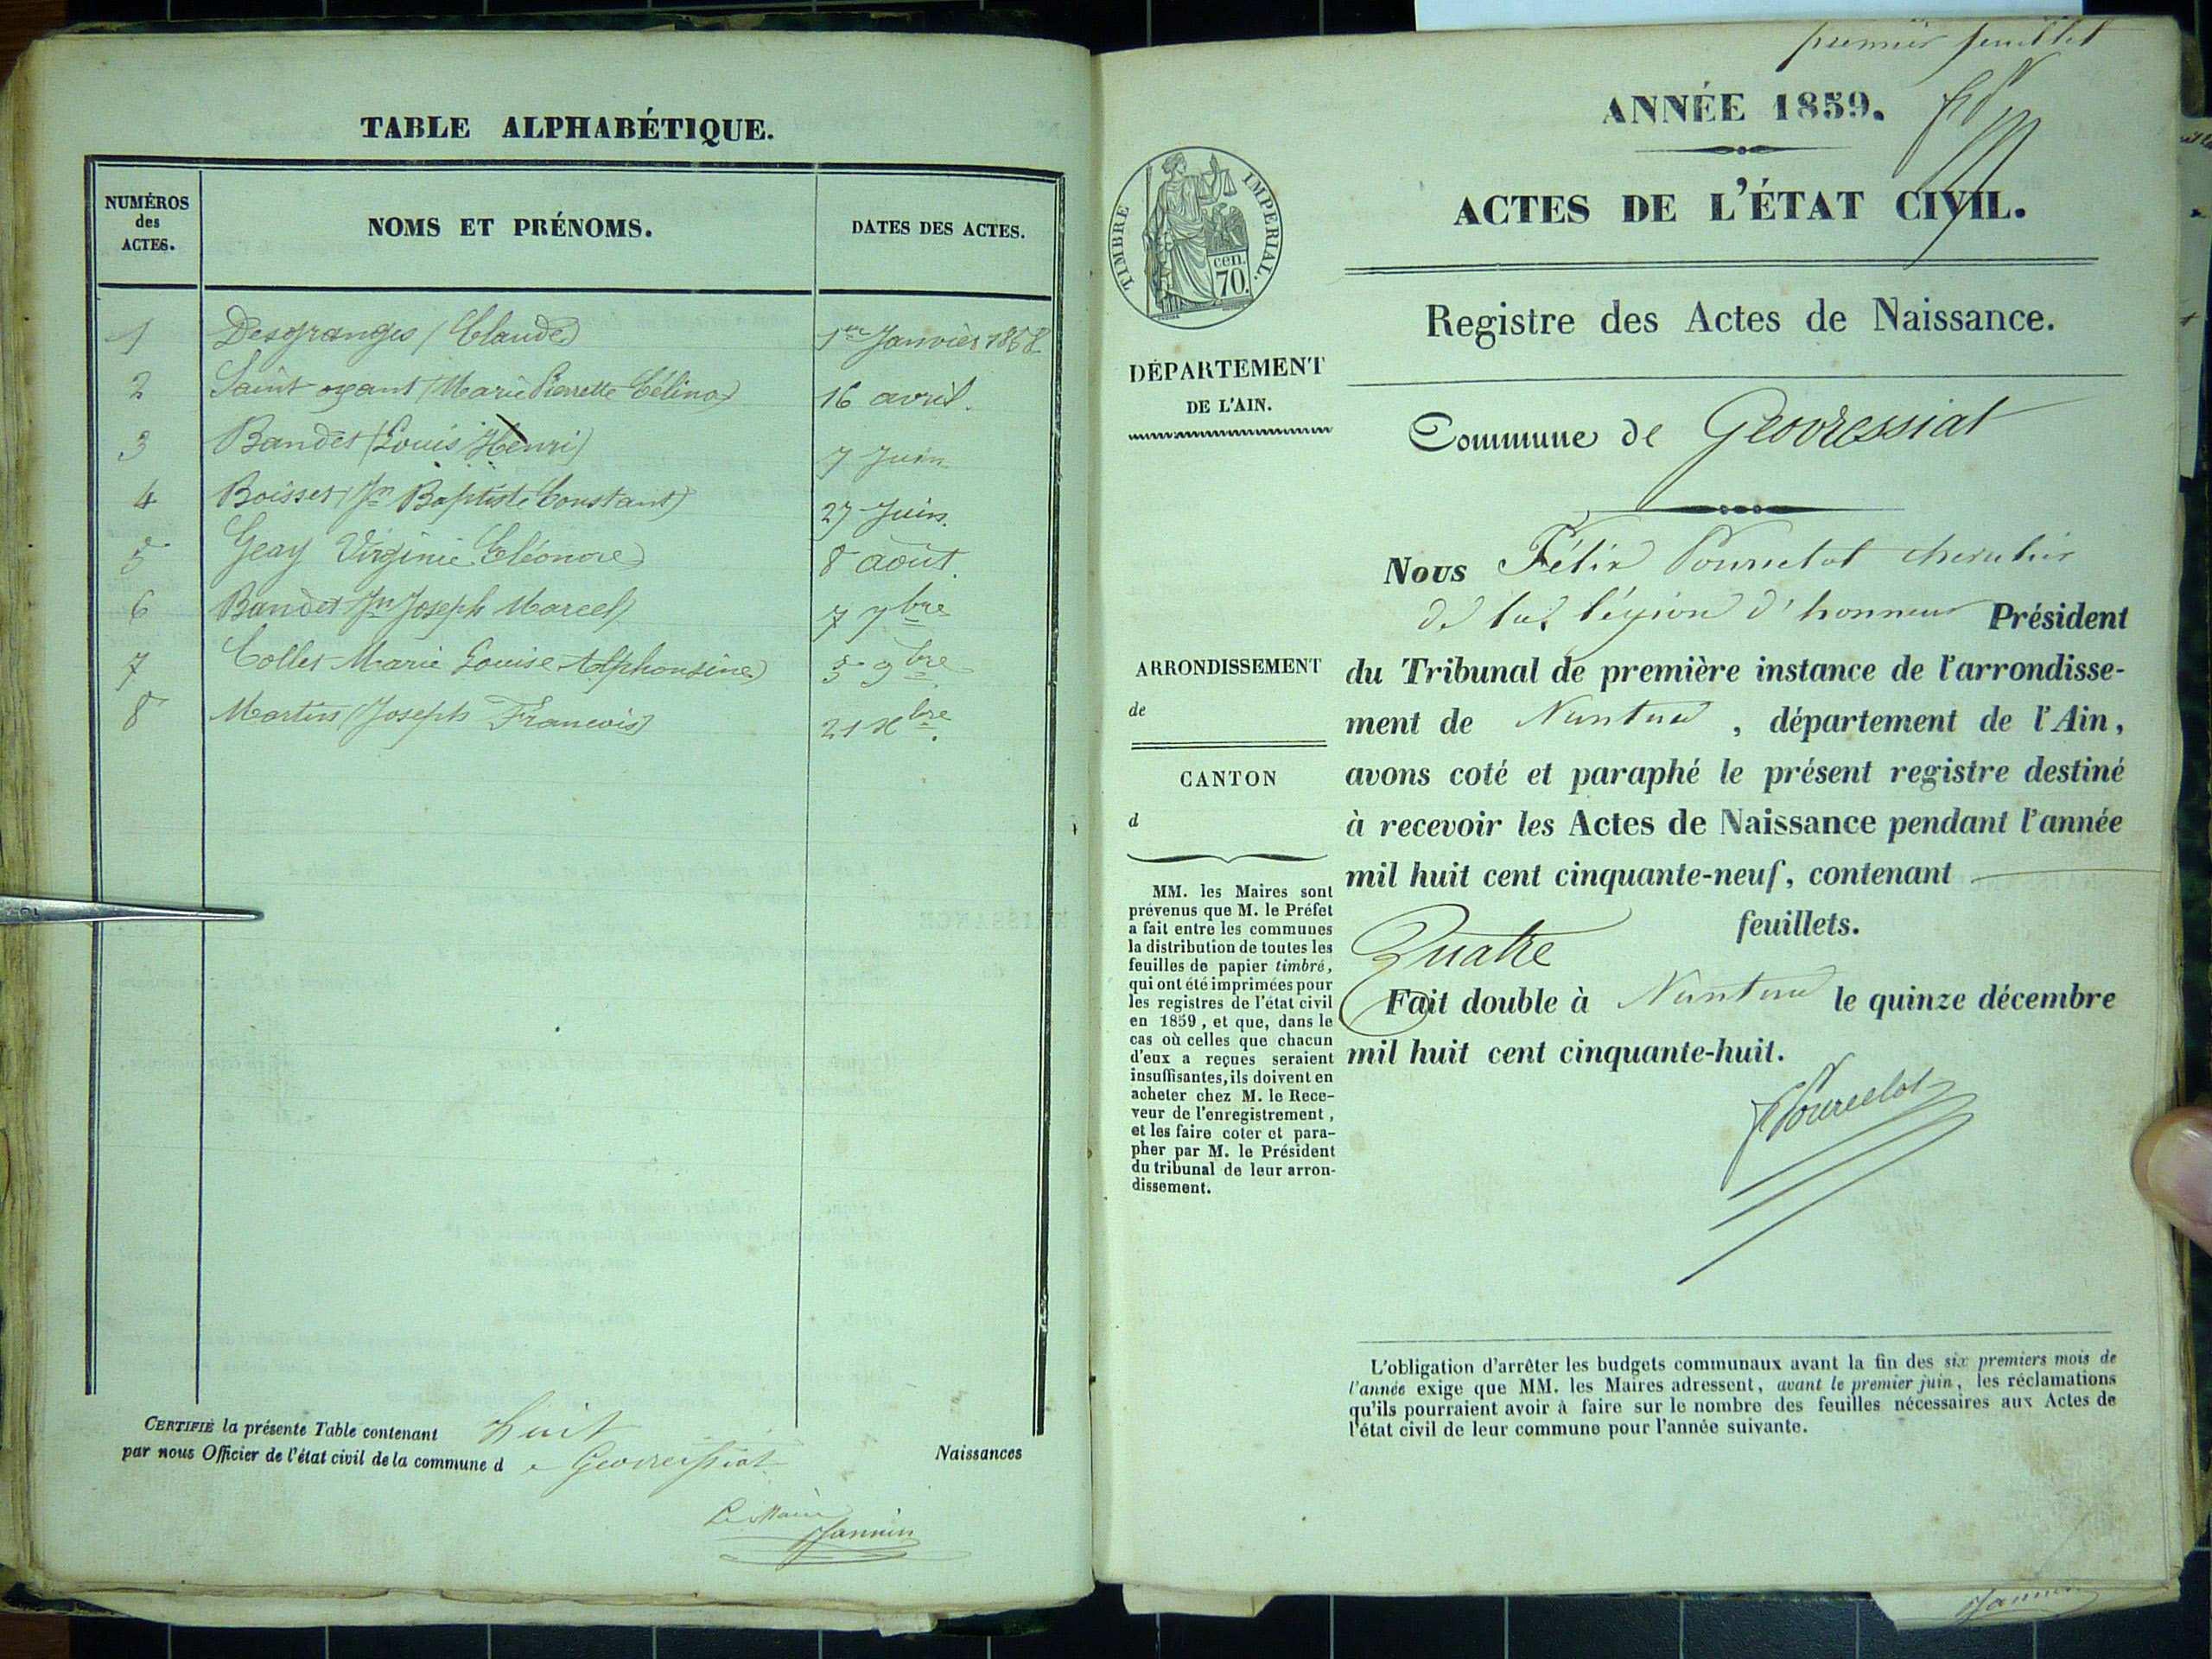 TABLE ALPHABÉTIQUE.
NUMÉROS des ACTES.
NOMS ET PRÉNOMS.
DATES DES ACTES.
1 Desgranges (Claude) 1er Janvier 1858
2 Saint oyant (Marie Pierrette Célina) 16 avril.
3 Bandet (Louis Henri) 7 Juin
4 Boisset (Jn Baptiste Constant) 27 Juin.
5 Geay Virginie Eléonore) 8 août.
6 Bandet Jn Joseph Marcel) 7 7bre
7 Collet Marie Louise Alphonsine) 5 9bre
8 Martin (Joseph François) 21 Xbre.
CERTIFIÉ la présente Table contenant huit Naissances
par nous Officier de l'état civil de la commune de Geovressiat
Le Maire
Jannin
premier feuillet
ANNÉE 1859.
ACTES DE L'ÉTAT CIVIL.
TIMBRE IMPERIAL.
cen.
70.
Registre des Actes de Naissance.
DÉPARTEMENT
DE L'AIN.
Commune de Geovressiat
Nous Félix Pourcelot chevalier
de la légion d'honneur Président
du Tribunal de première instance de l'arrondisse-
ment de Nantua, département de l'Ain,
avons coté et paraphé le présent registre destiné
à recevoir les Actes de Naissance pendant l'année
mil huit cent cinquante-neuf, contenant
Quatre feuillets.
Fait double à Nantua le quinze décembre
mil huit cent cinquante-huit.
FPourcelot
ARRONDISSEMENT
de
CANTON
d
MM. les Maires sont
prévenus que M. le Préfet
a fait entre les communes
la distribution de toutes les
feuilles de papier timbré,
qui ont été imprimées pour
les registres de l'état civil
en 1859, et que, dans le
cas où celles que chacun
d'eux a reçues seraient
insuffisantes, ils doivent en
acheter chez M. le Rece-
veur de l'enregistrement,
et les faire coter et para-
pher par M. le Président
du tribunal de leur arron-
dissement.
L'obligation d'arrêter les budgets communaux avant la fin des six premiers mois de
l'année exige que MM. les Maires adressent, avant le premier juin, les réclamations
qu'ils pourraient avoir à faire sur le nombre des feuilles nécessaires aux Actes de
l'état civil de leur commune pour l'année suivante.
Jannin